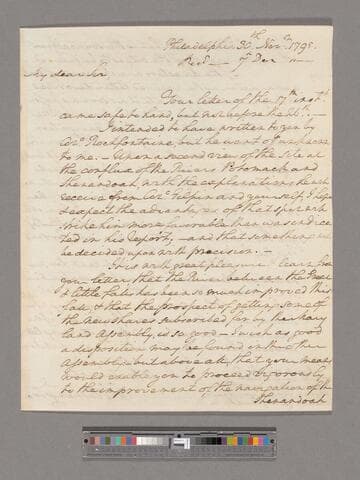 Philadelphia 30th Novr. 1795.
Recd — 7 Decr —
My dear Sir
Your letter of the 17th instt
came safe to hand, but not before last
I intended to have written to you by
Colo. Rochfontaine, but he went off unknown
to me. — Upon a second view of the Site at
the conflux of the Rivers Potomack and
Shenandoah, with the explanations he will
receive from Colo. Gilpin and yourself, I hope
& expect the advantages of that spot will
strike him more favorable than was indica
ted in his report; — and that something will
be decided upon with precision. —
It is with great pleasure I learn from
your letter that the River between the Great
& little falls has been so much improved this
fall, & that the prospect of getting some of
the new shares subscribed for by the Mary
land Assembly, is so good — I wish as good
a disposition may be found in the other
Assembly; but above all, that your means
would enable you to proceed vigorously
to the improvement of the navigation of the
Shenandoah